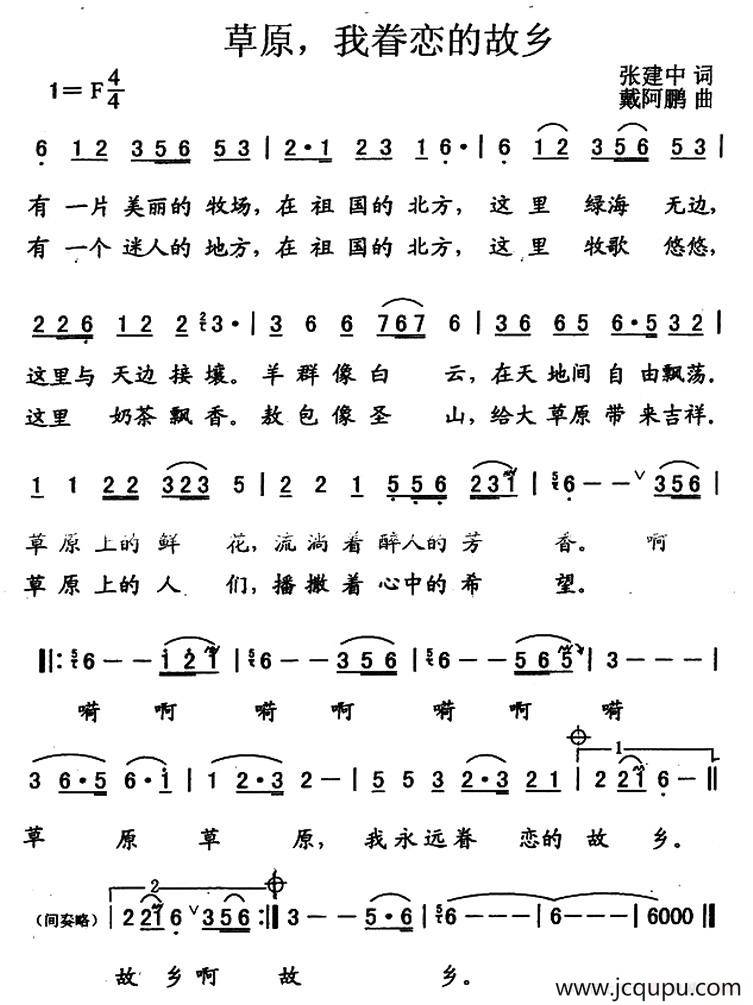 草原，我眷恋的故乡
1＝F 4/4
张建中 词
戴阿鹏 曲
6 1 2 3 5 6 5 3 | 2 · 1 2 3 1 6 · | 6 1 2 3 5 6 5 3 |
有 一片 美丽的 牧场，在 祖 国的 北方，这 里 绿海 无边，
有 一个 迷人的 地方，在 祖 国的 北方，这 里 牧歌 悠悠，
2 2 6 1 2 2 3 · | 3 6 6 7 6 7 6 | 3 6 6 5 6 · 5 3 2 |
这里与 天边 接 壤。羊 群 像 白 云，在天 地间 自 由飘荡．
这里 奶茶 飘 香。敖 包 像 圣 山，给大 草原 带 来吉祥．
1 1 2 2 3 2 3 5 | 2 2 1 5 5 6 2 3 1 | 5 6 - - ∨ 3 5 6 |
草 原 上的 鲜 花，流 淌 着 醉人的 芳 香。啊
草 原 上的 人 们，播 撒 着 心中的 希 望。
‖: 5 6 - - 1 2 1 | 5 6 - - 3 5 6 | 5 6 - - 5 6 5 | 3 - - - |
嗬 啊 嗬 啊 嗬 啊 嗬
3 6 · 5 6 · i | 1 2 · 3 2 - | 5 5 3 2 · 3 2 1 | 1 2 2 1 6 - ‖
草 原 草 原，我 永 远 眷 恋的 故 乡。
（间奏略） | 2 2 2 1 6 ∨ 3 5 6 :‖ 3 - - 5 · 6 | 5 6 - - - | 6 - - - | 6000 ‖
故 乡 啊 故 乡。
www.jcqupu.com